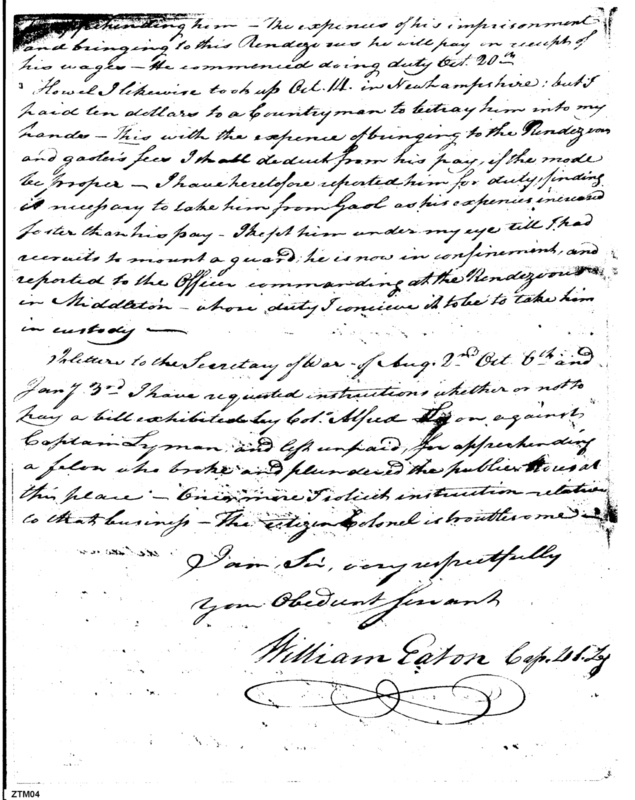 apprehending him – The expences of his imprisonment
and bringing to this Rendezvous he will pay on receipt of
his wages – He commenced doing duty Oct. 20th
Howel I likewise took up Oct. 14. in Newhampshire: but I
paid ten dollars to a Countryman to betray him into my
hands – This with the expence of bringing to the Rendezvous
and gaoler's fees I shall deduct from his pay, if the mode
be proper – I have heretofore reported him for duty, finding
it necessary to take him from Gaol as his expences increased
faster than his pay – I kept him under my eye till I had
recruits to mount a guard; he is now in confinement, and
reported to the Officer commanding at the Rendezvous
in Middleton – whose duty I concieve it to be to take him
in custody —
In letters to the Secretary of War – of Aug. 2nd Oct 6th and
Jany 3rd I have requested instructions whether or not to
pay a bill exhibited by Col. Alfred Lyon against
Captain Lyman and left unpaid, for apprehending
a felon who broke and plundered the public Store at
this place – Once more I solicit instruction relative
to that business – The citizen Colonel is troublesome –
I am, Sir, very respectfully
your Obedient Servant
William Eaton Cap. 4 S. Lg
ZTM04